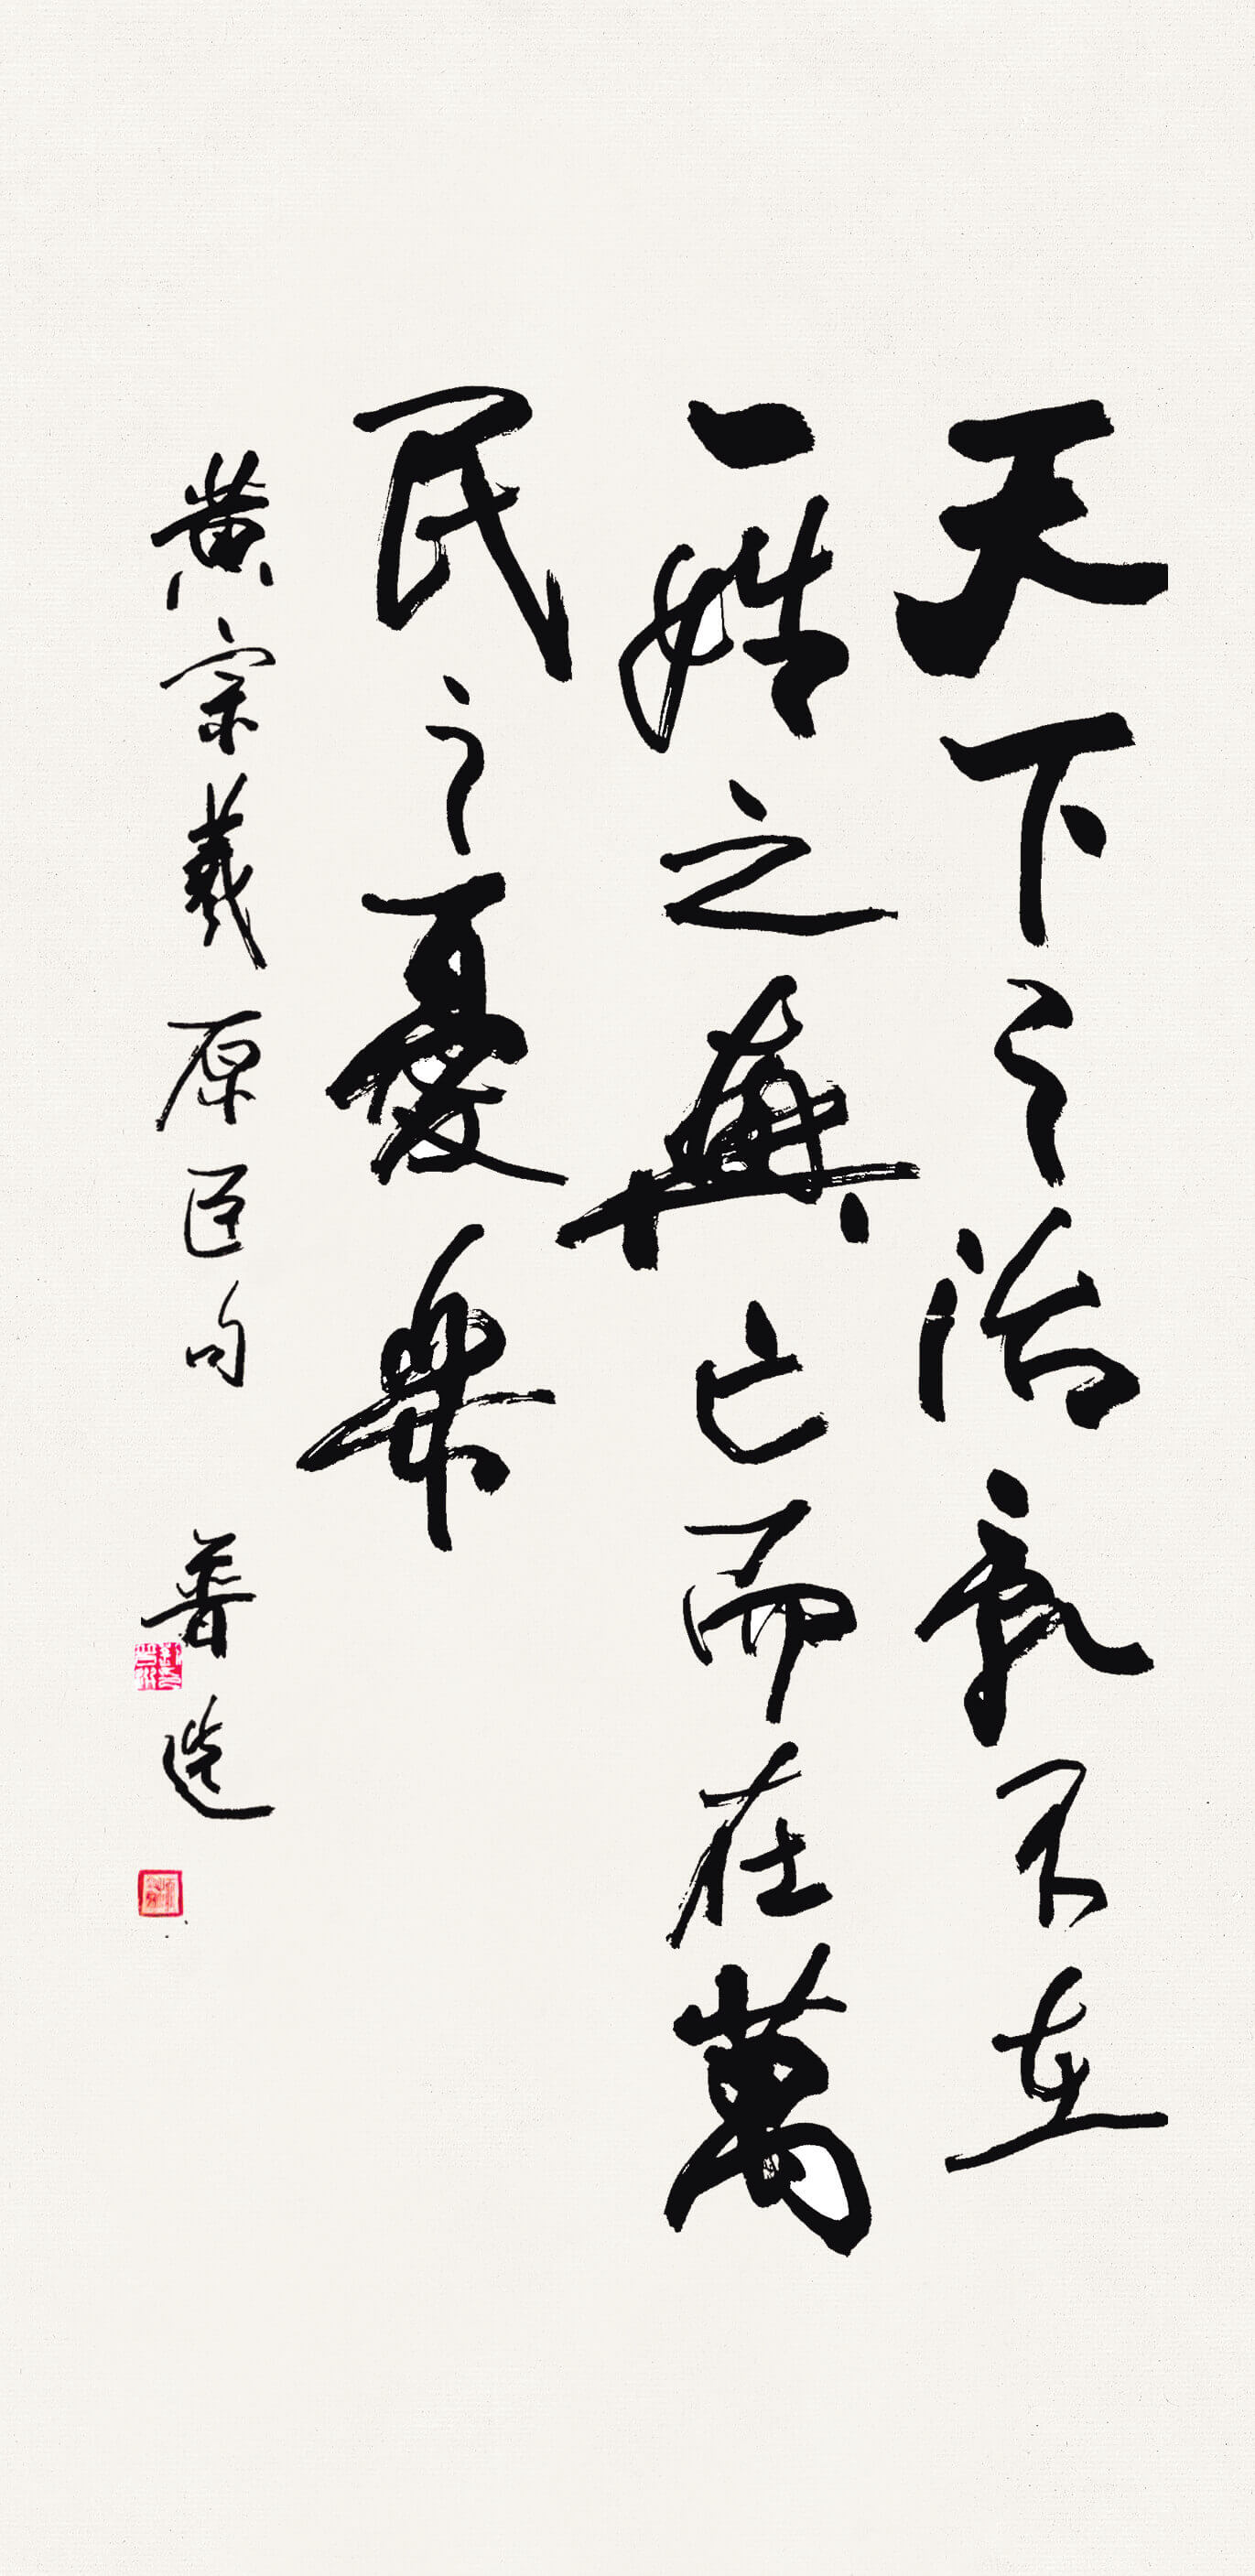 天下之治亂不在
一姓之興亡而在萬
民之憂樂
黄宗羲原臣句 普